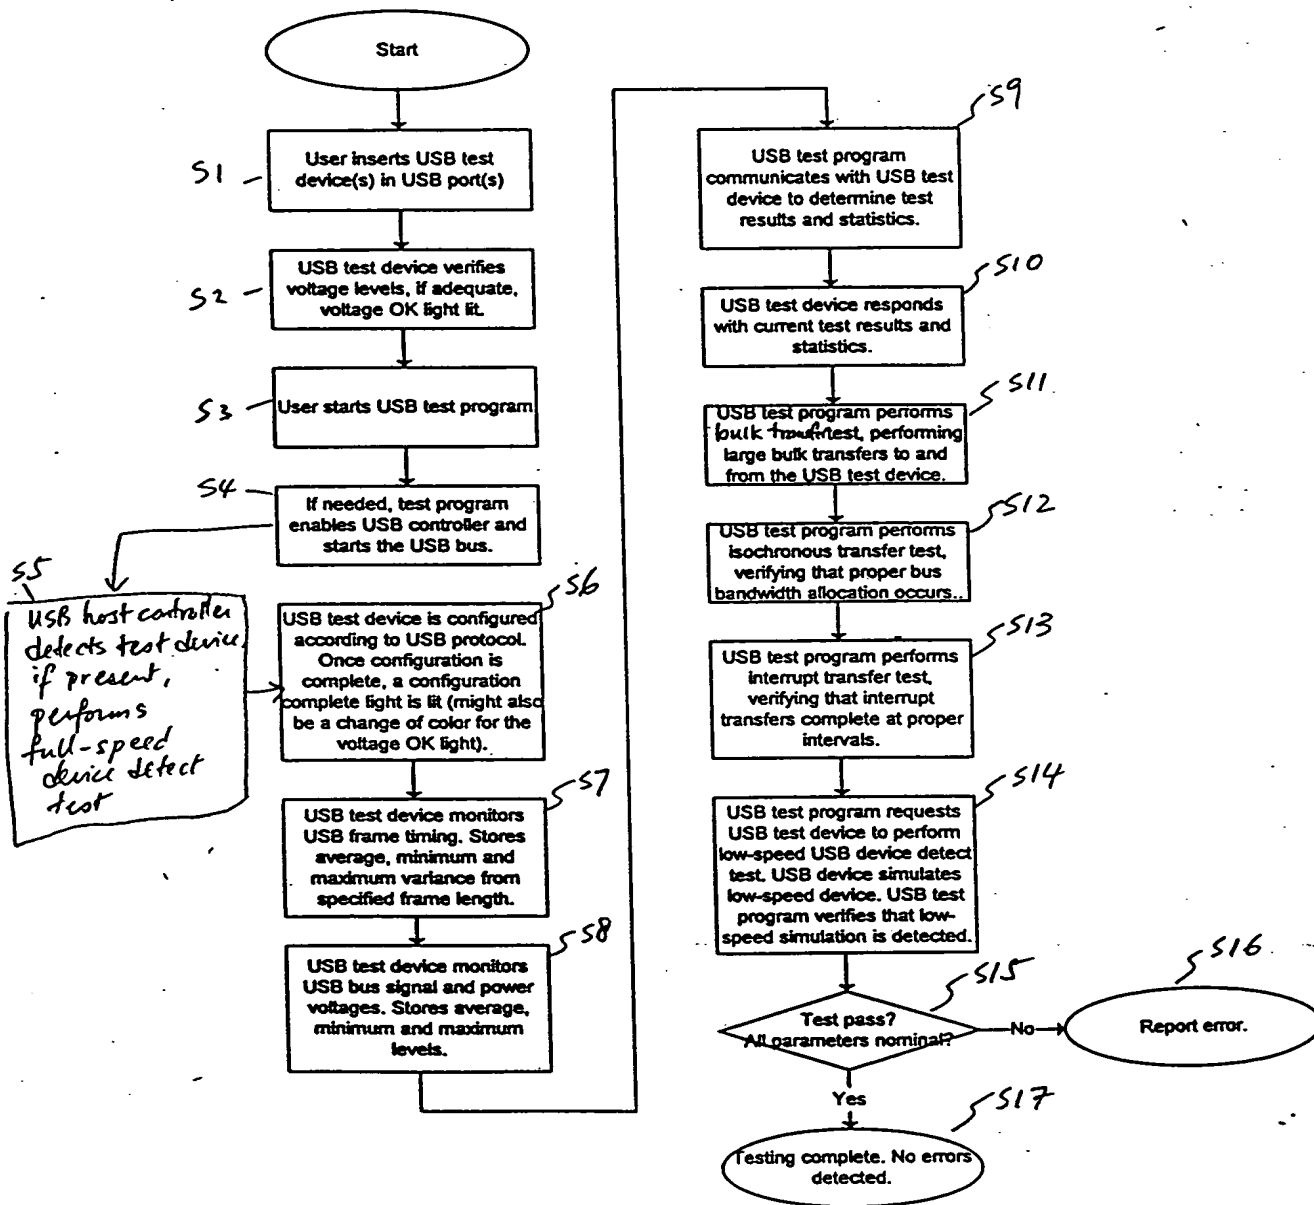 Start
S1
User inserts USB test
device(s) in USB port(s)
S2
USB test device verifies
voltage levels, if adequate,
voltage OK light lit.
S3
User starts USB test program
S4
If needed, test program
enables USB controller and
starts the USB bus.
S5
USB host controller
detects test device
if present,
performs
full-speed
device detect
test
S6
USB test device is configured
according to USB protocol.
Once configuration is
complete, a configuration
complete light is lit (might also
be a change of color for the
voltage OK light).
S7
USB test device monitors
USB frame timing. Stores
average, minimum and
maximum variance from
specified frame length.
S8
USB test device monitors
USB bus signal and power
voltages. Stores average,
minimum and maximum
levels.
S9
USB test program
communicates with USB test
device to determine test
results and statistics.
S10
USB test device responds
with current test results and
statistics.
S11
USB test program performs
bulk transfer test, performing
large bulk transfers to and
from the USB test device.
S12
USB test program performs
isochronous transfer test,
verifying that proper bus
bandwidth allocation occurs..
S13
USB test program performs
interrupt transfer test,
verifying that interrupt
transfers complete at proper
intervals.
S14
USB test program requests
USB test device to perform
low-speed USB device detect
test. USB device simulates
low-speed device. USB test
program verifies that low-
speed simulation is detected.
S15
Test pass?
All parameters nominal?
No
S16
Report error.
Yes
S17
Testing complete. No errors
detected.